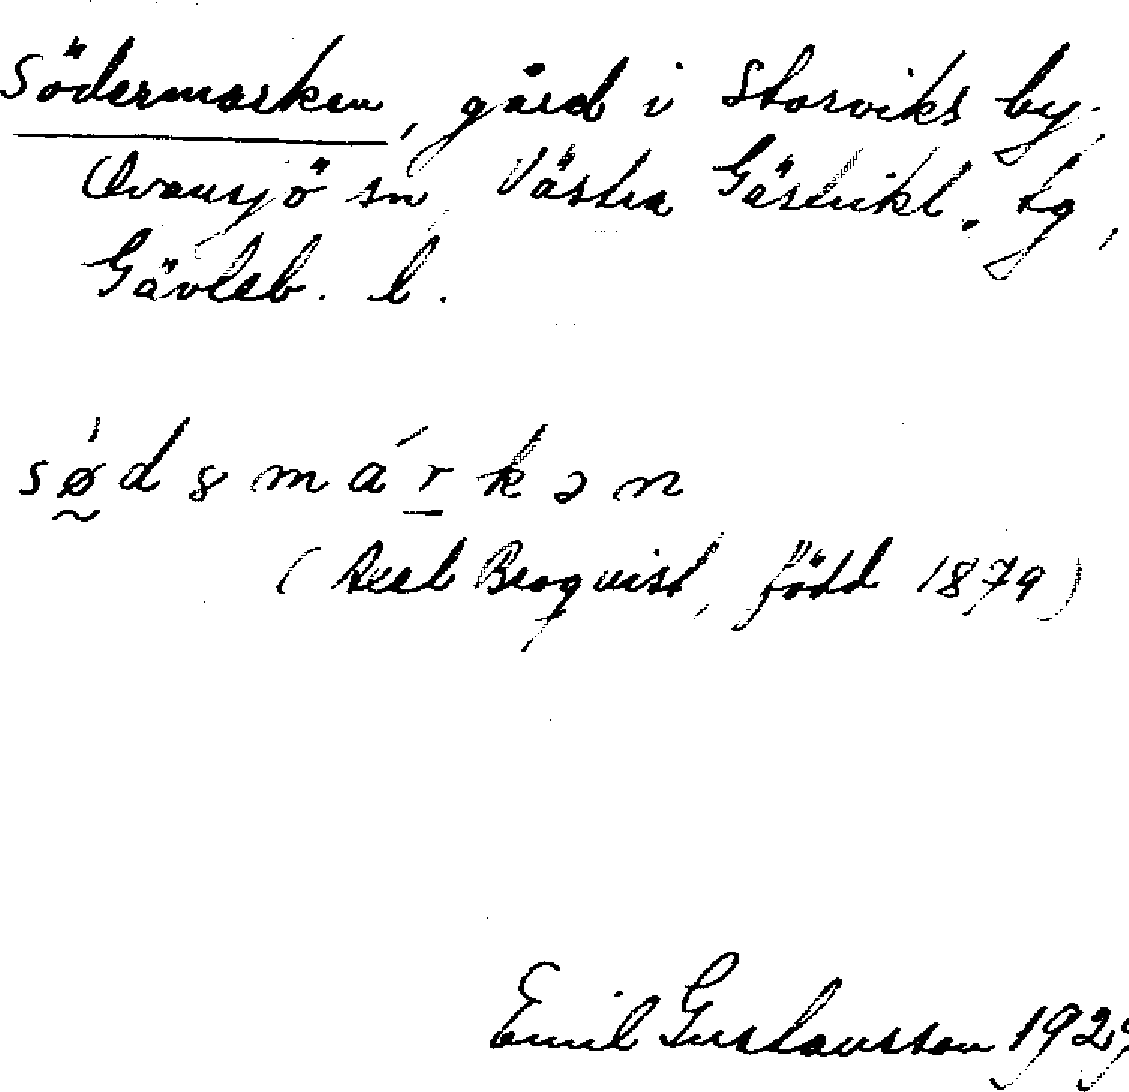 Södermarken, gård i Storviks by,
Ovansjö sn, Västra Gästrikl. tg,
Gävleb. l.
sǿdɘmárkən
(Axel Bergquist, född 1879)
Emil Gustavsson 192